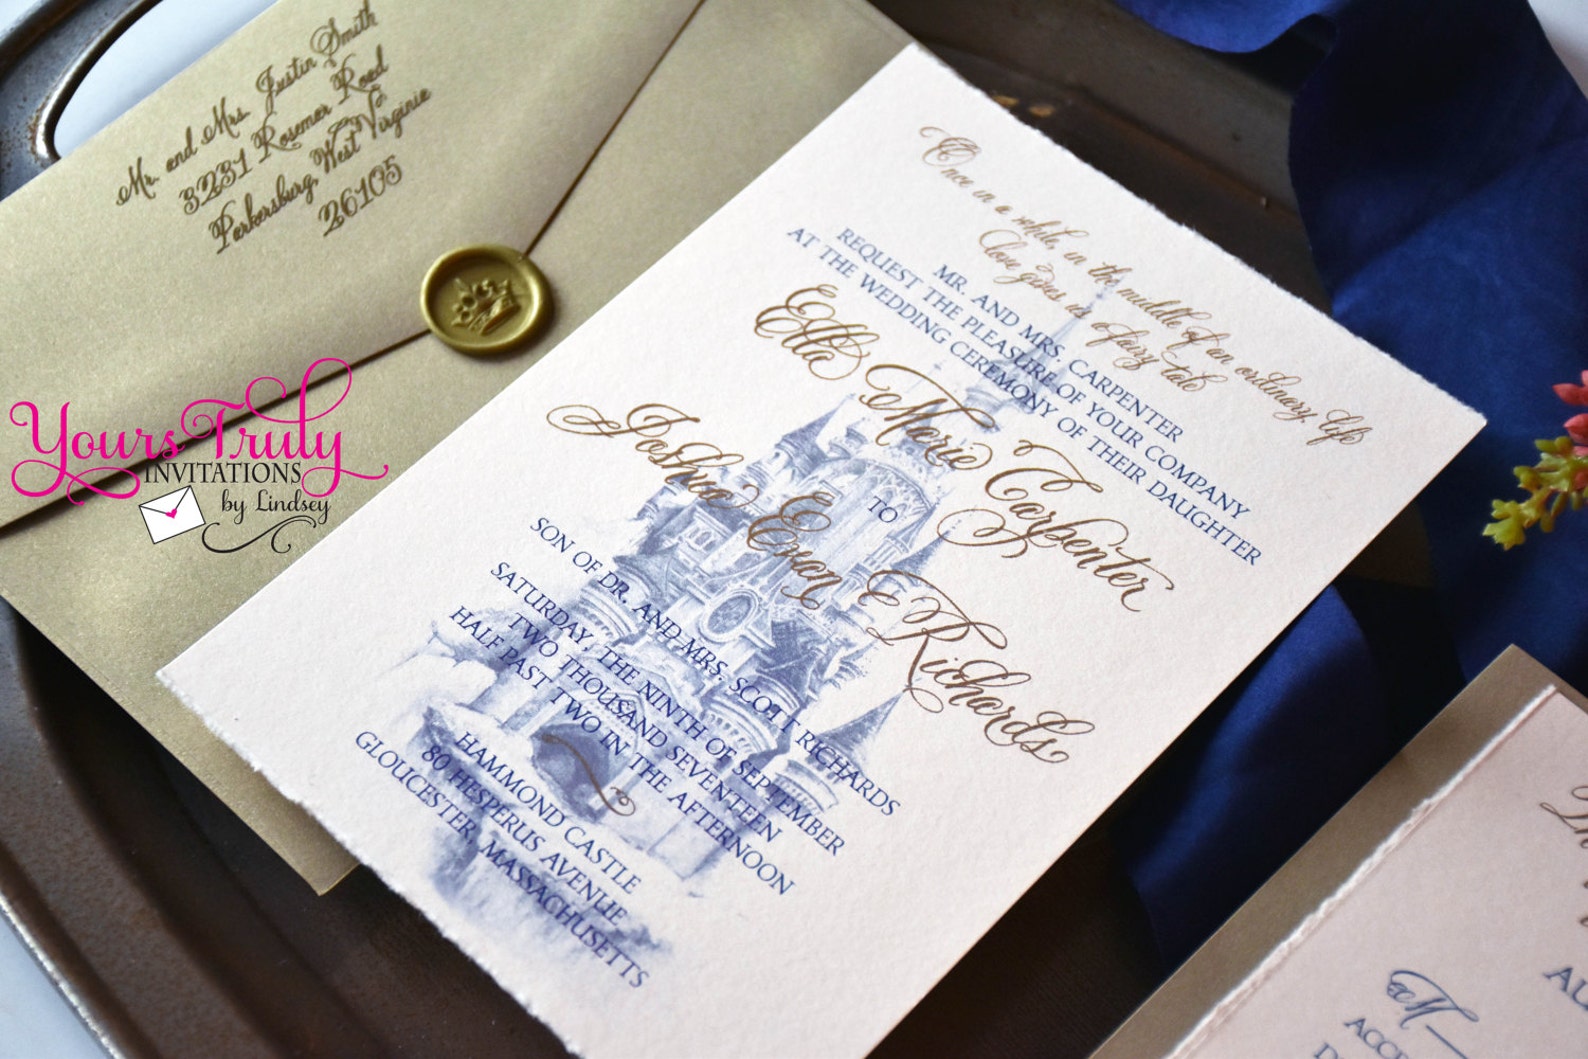 Mr. and Mrs. Justin Smith
3231 Rosemar Road
Parkersburg, West Virginia
26105
Yours Truly
INVITATIONS
by Lindsey
Once in a while, in the middle of an ordinary life
love gives us a fairy tale
MR. AND MRS. CARPENTER
REQUEST THE PLEASURE OF YOUR COMPANY
AT THE WEDDING CEREMONY OF THEIR DAUGHTER
Ella Marie Carpenter
TO
Joshua Evan Richards
SON OF DR. AND MRS. SCOTT RICHARDS
SATURDAY, THE NINTH OF SEPTEMBER
TWO THOUSAND SEVENTEEN
HALF PAST TWO IN THE AFTERNOON
HAMMOND CASTLE
80 HESPERUS AVENUE
GLOUCESTER, MASSACHUSETTS
M